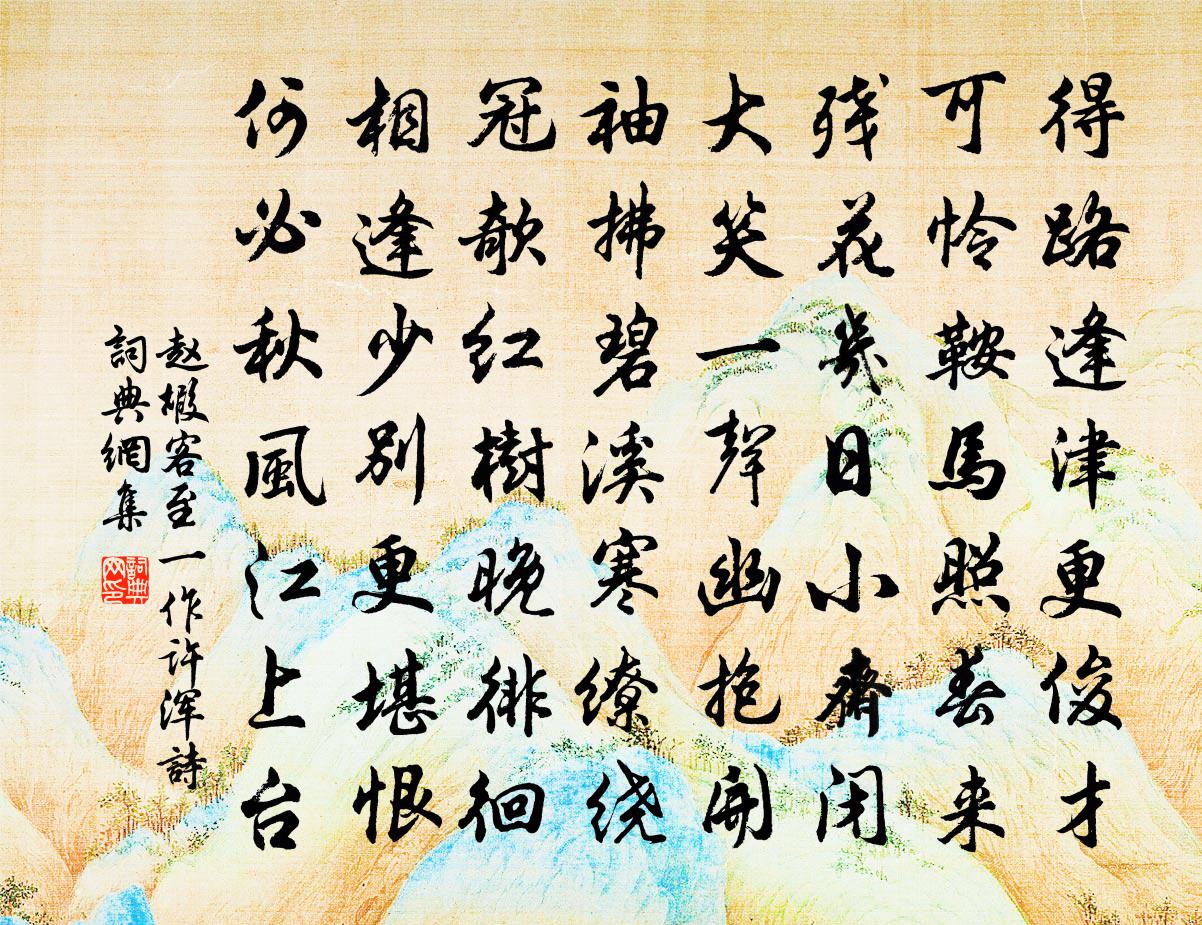 得路逢津更俊才
可怜鞍馬照春来
残花幾日小齋闭
大笑一聲幽抱開
袖拂碧溪寒缭绕
冠欹红樹晚徘徊
相逢少别更堪恨
何必秋風江上台
赵嘏客至一作许浑詩
詞典網集